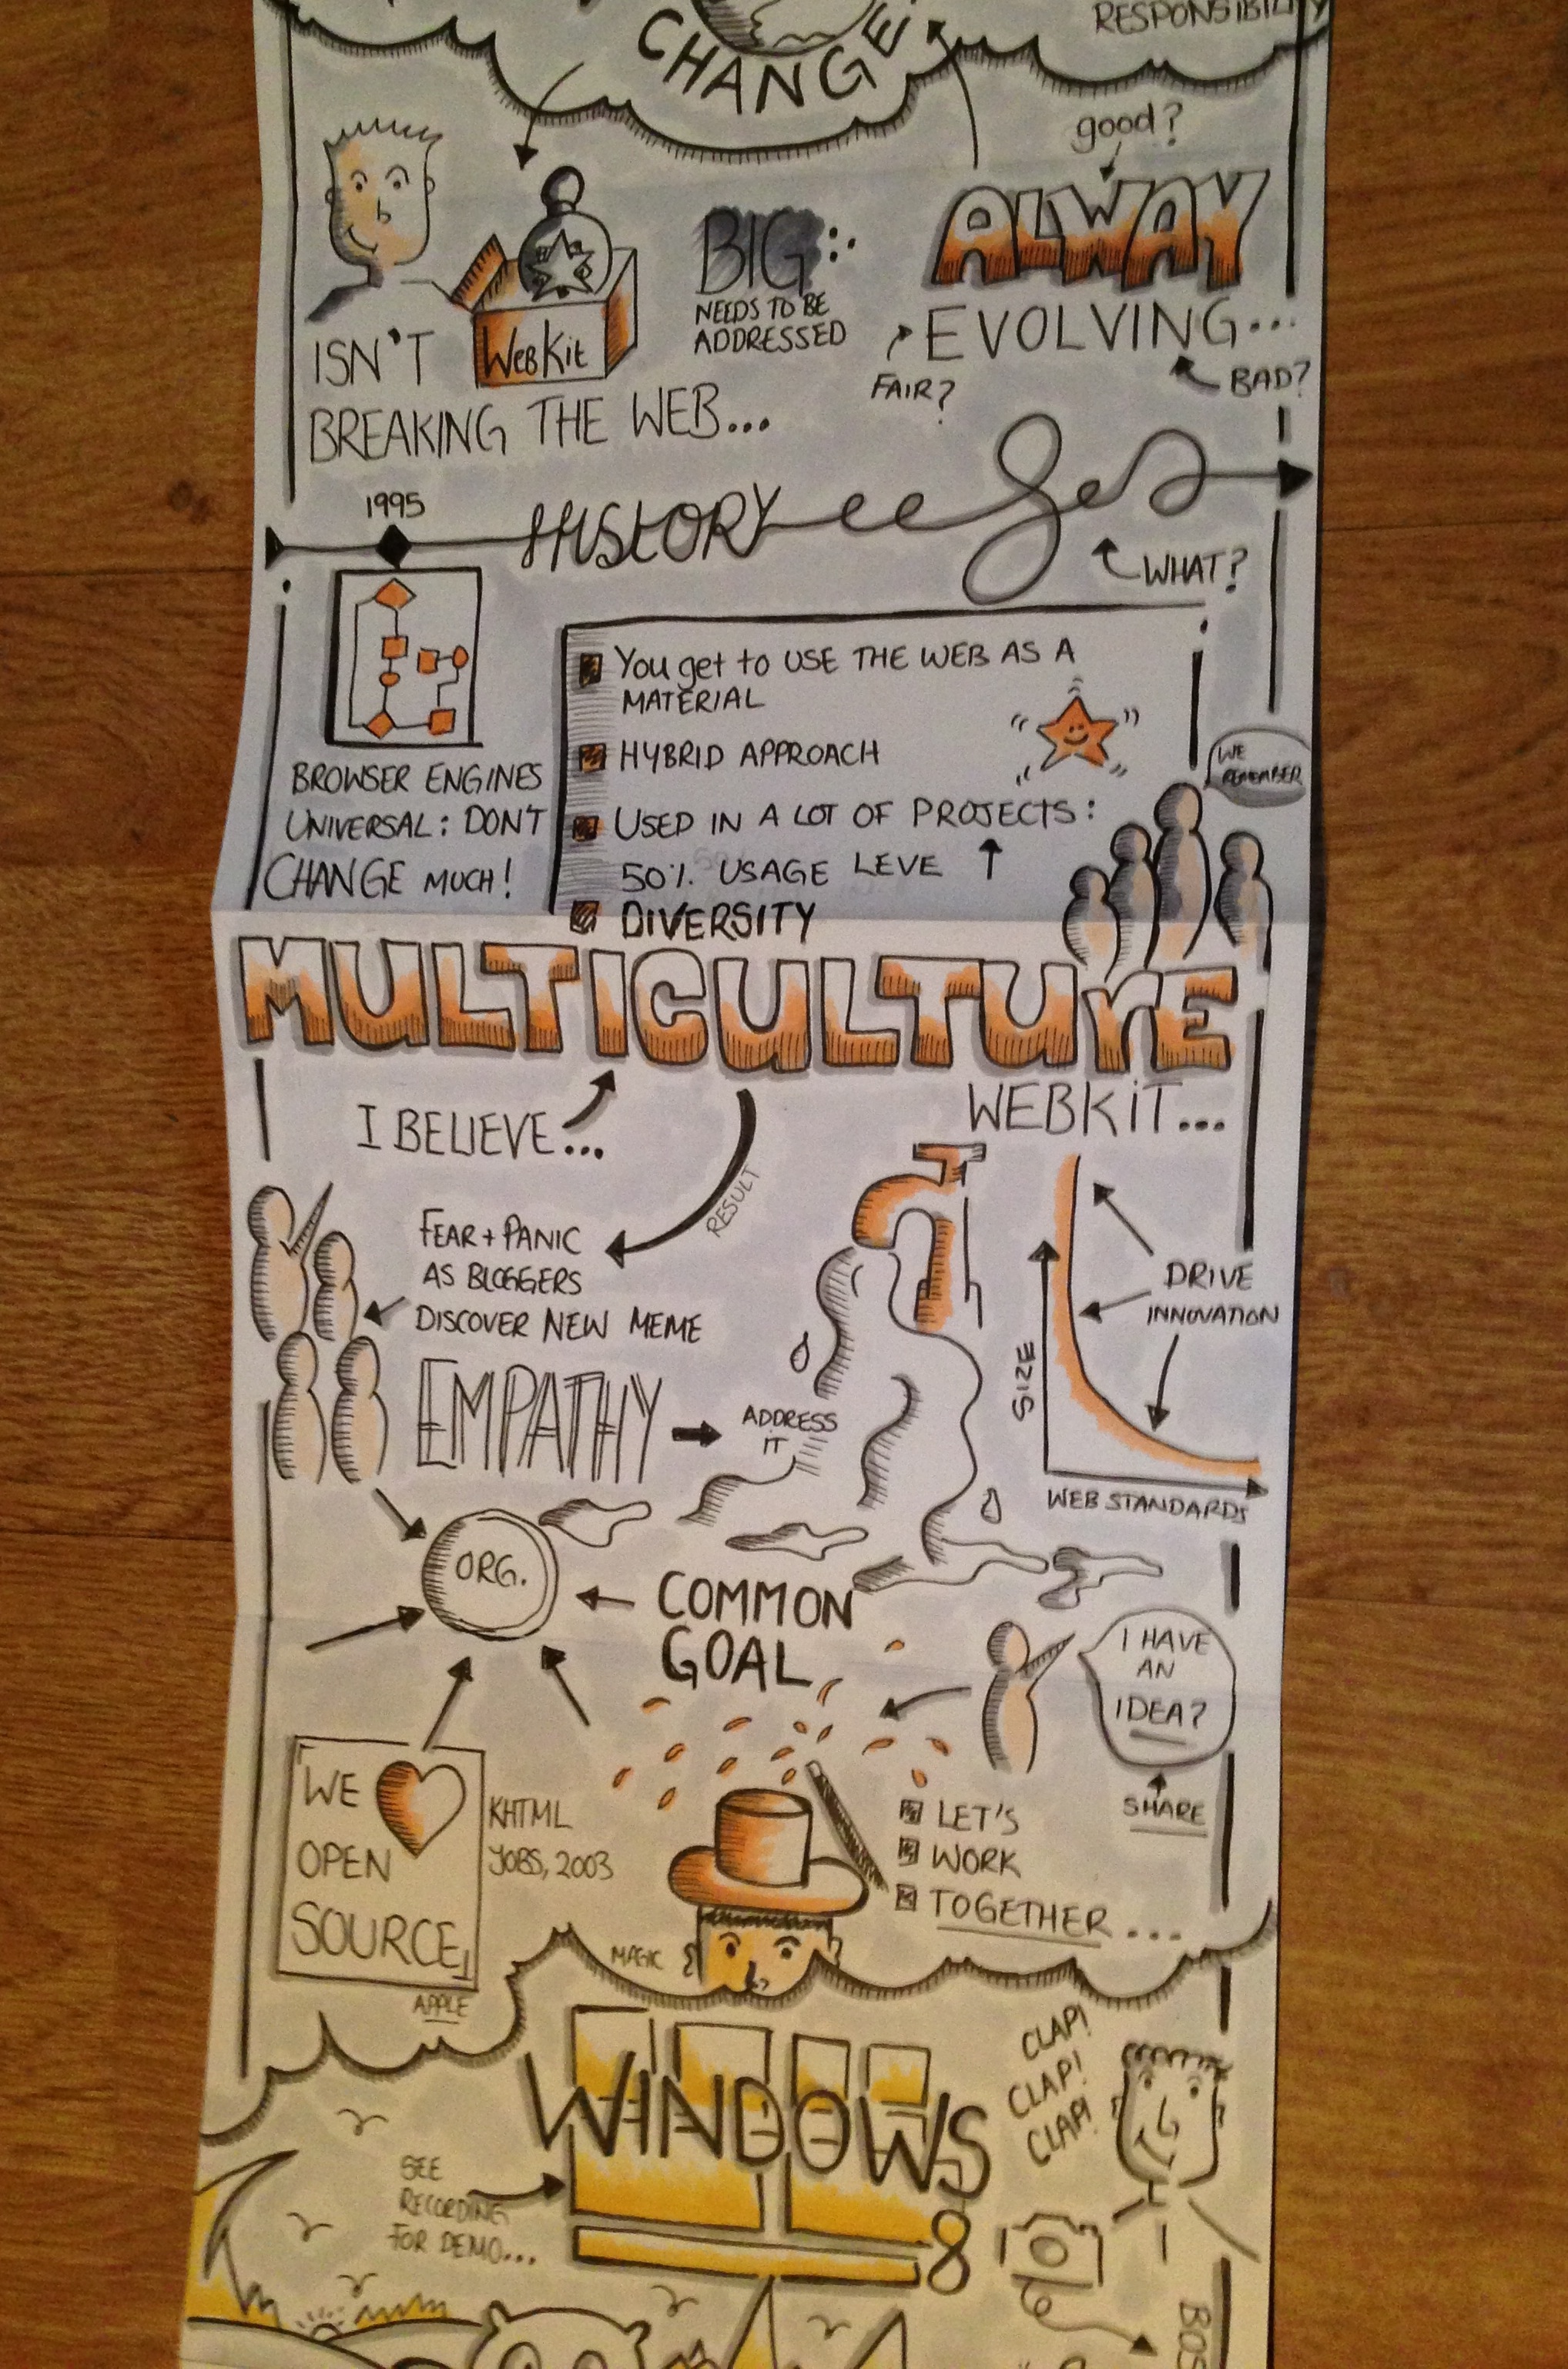 RESPONSIBILITY
CHANGE
good?
ALWAY
EVOLVING...
FAIR?
BAD?
BIG:
NEEDS TO BE
ADDRESSED
WEBKIT
ISN'T
BREAKING THE WEB...
1995
HISTORY
WHAT?
BROWSER ENGINES
UNIVERSAL: DON'T
CHANGE MUCH!
You get to USE THE WEB AS A
MATERIAL
HYBRID APPROACH
USED IN A LOT OF PROJECTS:
50% USAGE LEVE ↑
DIVERSITY
WE
REMEMBER
MULTICULTURE
I BELIEVE...
WEBKIT...
RESULT
FEAR + PANIC
AS BLOGGERS
DISCOVER NEW MEME
DRIVE
INNOVATION
SIZE
WEB STANDARDS
EMPATHY
ADDRESS
IT
ORG.
COMMON
GOAL
I HAVE
AN
IDEA?
SHARE
WE
OPEN
SOURCE
APPLE
KHTML
JOBS, 2003
LET'S
WORK
TOGETHER...
MAGIC
WINDOWS
8
CLAP!
CLAP!
CLAP!
SEE
RECORDING
FOR DEMO...